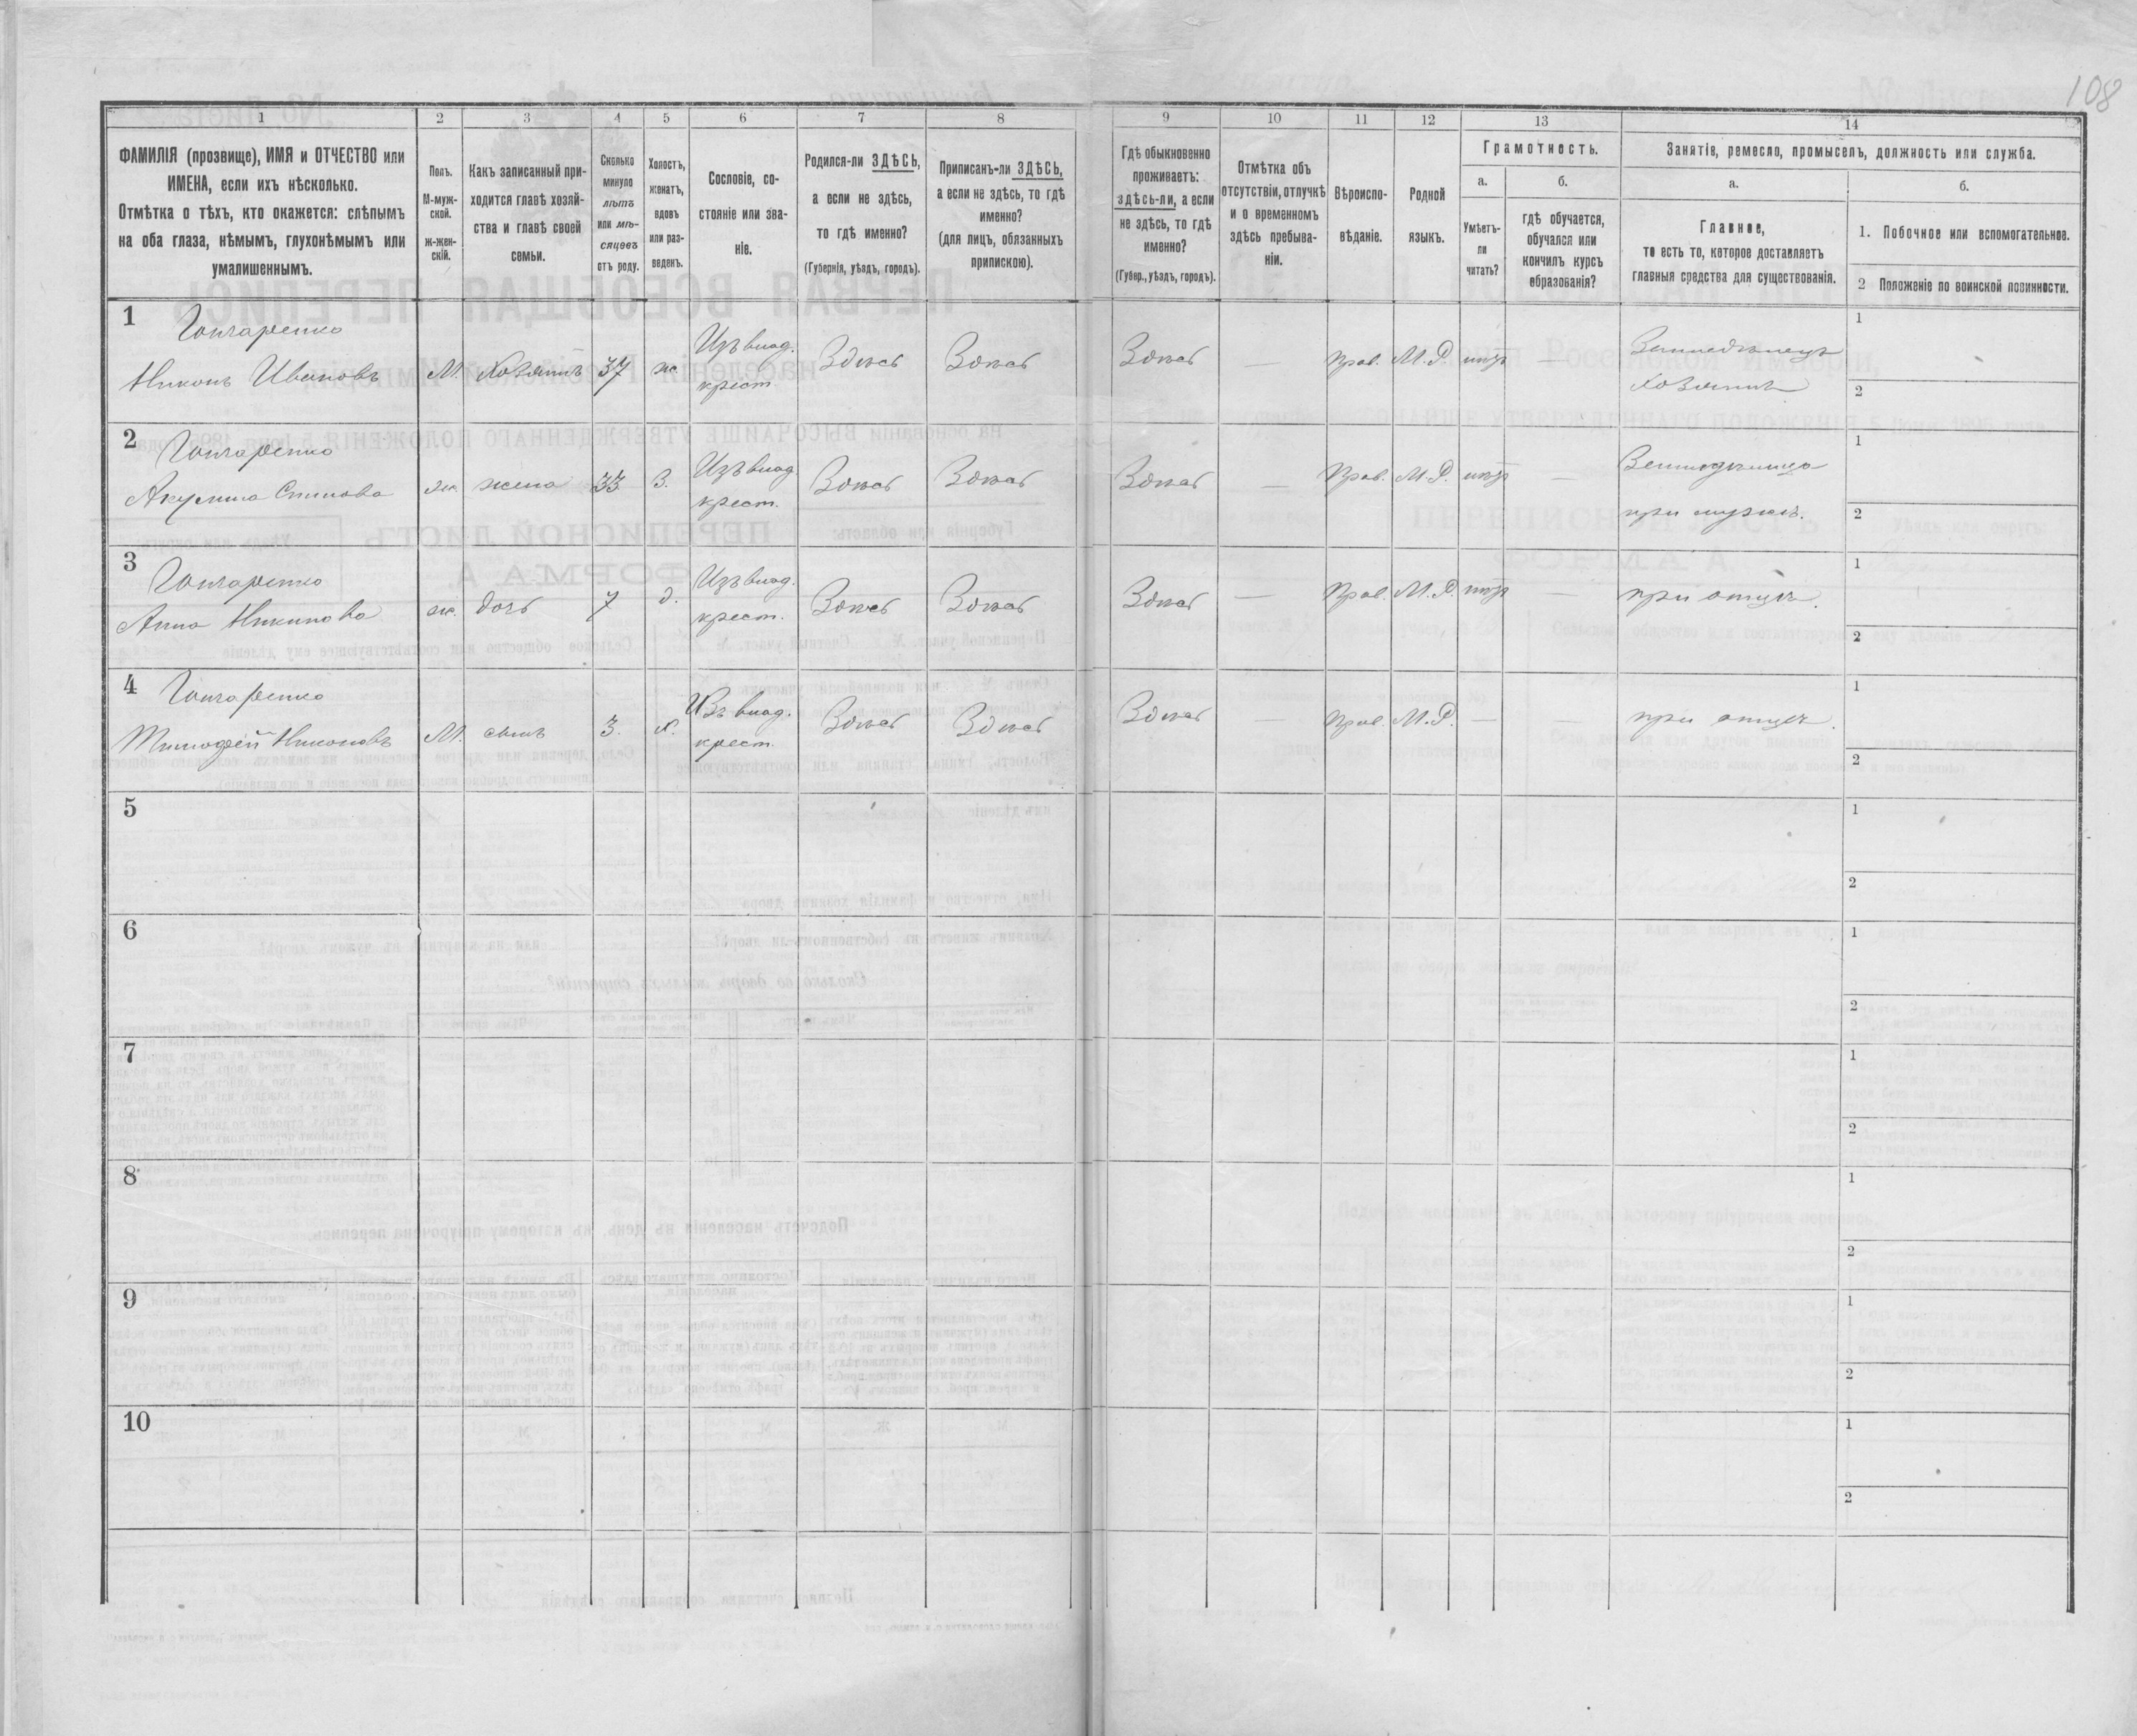 108
1 2 3 4 5 6 7 8 9 10 11 12 13 14
ФАМИЛІЯ (прозвище), ИМЯ и ОТЧЕСТВО или
ИМЕНА, если ихъ нѣсколько.
Отмѣтка о тѣхъ, кто окажется: слѣпымъ
на оба глаза, нѣмымъ, глухонѣмымъ или
умалишеннымъ.
Полъ.
М-муж-
ской.
ж-жен-
скій.
Какъ записанный при-
ходится главѣ хозяй-
ства и главѣ своей
семьи.
Сколько
минуло
лѣтъ
или мѣ-
сяцевъ
отъ роду.
Холостъ,
женатъ,
вдовъ
или раз-
веденъ.
Сословіе, со-
стояніе или зва-
ніе.
Родился-ли ЗДѢСЬ,
а если не здѣсь,
то гдѣ именно?
(Губернія, уѣздъ, городъ).
Приписанъ-ли ЗДѢСЬ,
а если не здѣсь, то гдѣ
именно?
(для лицъ, обязанныхъ
припискою).
Гдѣ обыкновенно
проживаетъ:
здѣсь-ли, а если
не здѣсь, то гдѣ
именно?
(Губер., уѣздъ, городъ).
Отмѣтка объ
отсутствіи, отлучкѣ
и о временномъ
здѣсь пребыва-
ніи.
Вѣроиспо-
вѣданіе.
Родной
языкъ.
Грамотность.
а.
Умѣетъ-
ли
читать?
б.
гдѣ обучается,
обучался или
кончилъ курсъ
образованія?
Занятія, ремесло, промыселъ, должность или служба.
а.
Главное,
то есть то, которое доставляетъ
главныя средства для существованія.
б.
1. Побочное или вспомогательное.
2 Положеніе по воинской повинности.
1 Гончаренко
Никонъ Ивановъ М. хозяинъ 37 ж. Изъ влад.
крест. Здѣсь Здѣсь Здѣсь — Прав. М.Р. нѣтъ — Земледѣлецъ
хозяинъ 1
2
2 Гончаренко
Акулина жк. жена 33 З. Изъ влад.
крест. Здѣсь Здѣсь Здѣсь — Прав. М.Р. нѣтъ — 
при мужѣ. 1
2
3 Гончаренко
Анна Никонова жк. дочь 7 д. Изъ влад.
крест. Здѣсь Здѣсь Здѣсь — Прав. М.Р. нѣтъ — при отцѣ. 1
2
4 Гончаренко
Тимофей Никоновъ М. сынъ 3. х. Изъ влад.
крест. Здѣсь Здѣсь Здѣсь — Прав. М.Р. — при отцѣ. 1
2
5 1
2
6 1
2
7 1
2
8 1
2
9 1
2
10 1
2